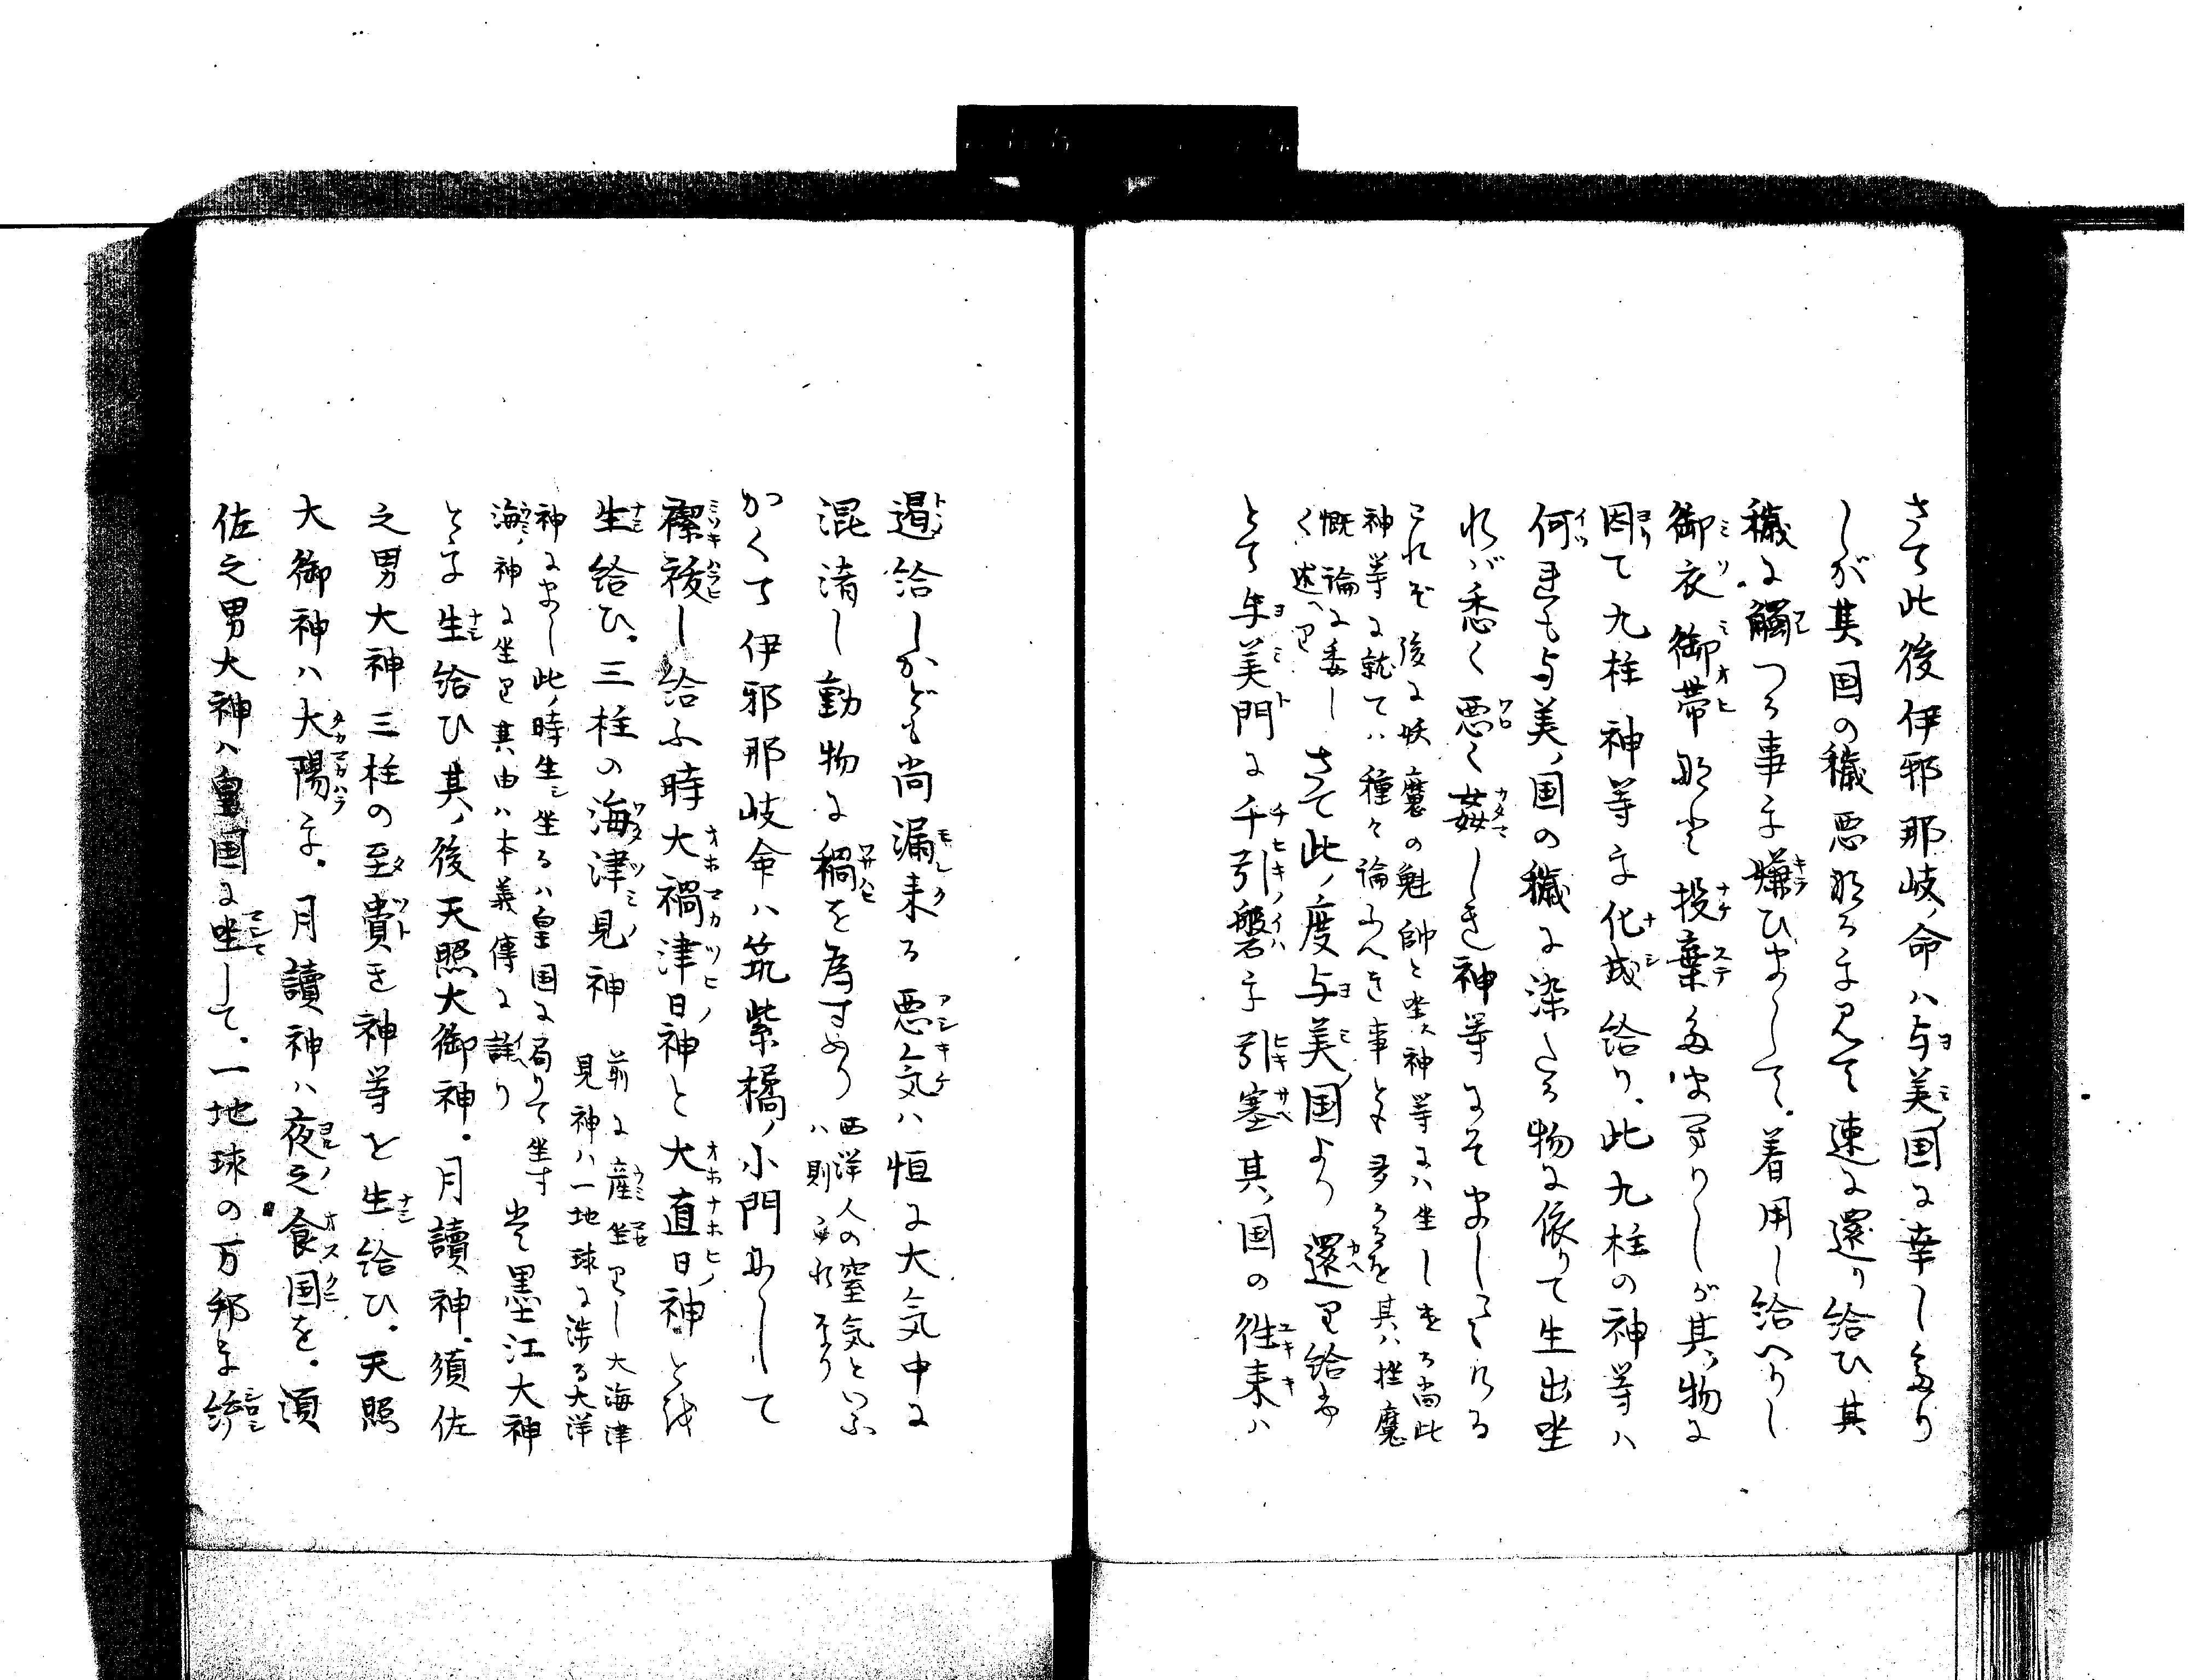 さて此後伊邪那岐命ハ与美国に幸しゝ
しが其国の穢悪なるを見て速に還り給ひ其
穢に觸つる事を嫌ひまして。着用し給へりし
御衣御帯など投棄たまへりしが其物に
因て九柱神等を化成給り。此九柱の神等ハ
何きも与美国の穢に染たる物に依りて生出坐
れバ悉く悪く姦しき神等にそましける
これぞ後に妖魔の魁帥と坐神等にハ坐しける尚此
神等に就てハ種々論ふべき事ども多かるを其ハ挫魔
慨論に委し
く述へり
さて此度与美国より還り給ふ
とて与美門に千引磐を引塞其国の往来ハ
遏給しかども尚漏来る悪気ハ恒に大気中に
混淆し動物に禍を為すめり
西洋人の窒気といふ
ハ則これなり
かくて伊邪那岐命ハ筑紫橘小門にして
禊祓し給ふ時大禍津日神と大直日神とを
生給ひ。三柱の海津見神
前に産坐りし大海津
見神ハ一地球に渉る大洋
神にまし此時生坐るハ皇国に局りて坐す
海神に坐り其由ハ本義傳に説り
墨江大神
とを生給ひ其後天照大御神。月讀神。須佐
之男大神三柱の至貴き神等を生給ひ。天照
大御神ハ大陽を。月讀神ハ夜之食国を。須
佐之男大神ハ皇国に坐して。一地球の万邦を統